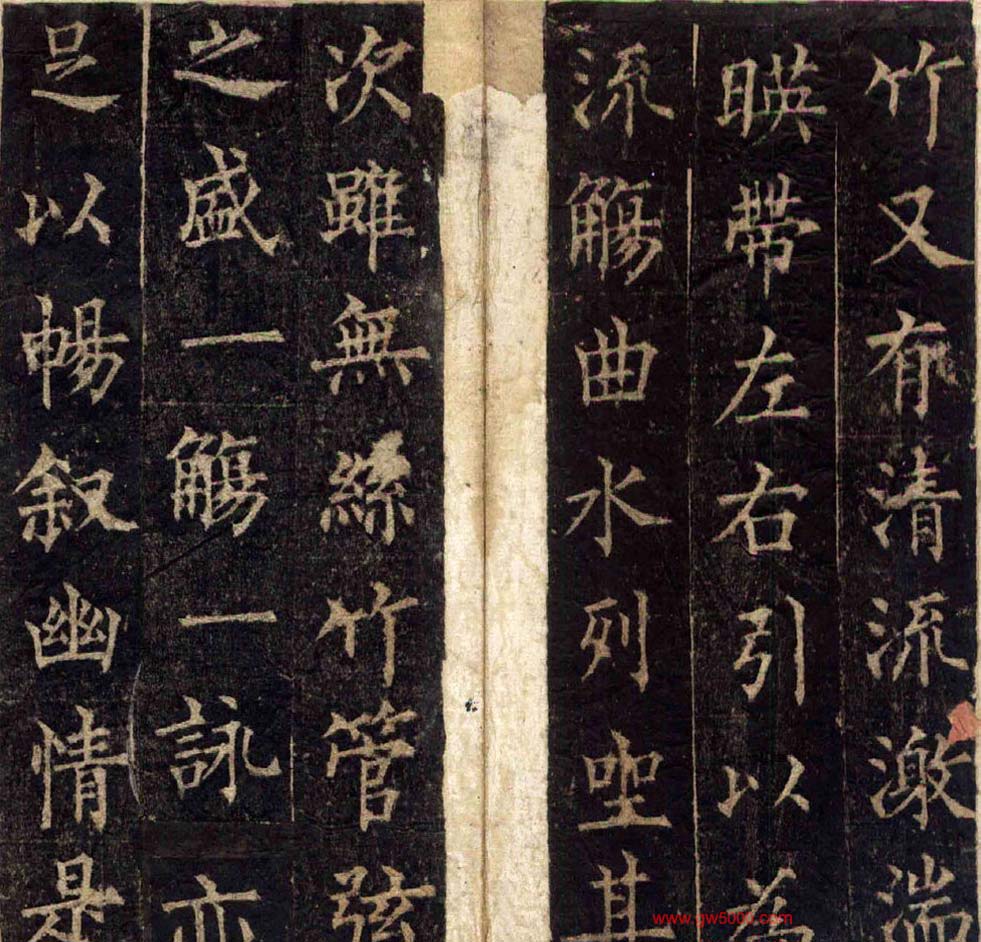 竹又有清流激湍
暎帶左右引以為
流觴曲水列坐其
次雖無絲竹管弦
之盛一觴一詠亦
足以暢敘幽情是
www.gw5000.com